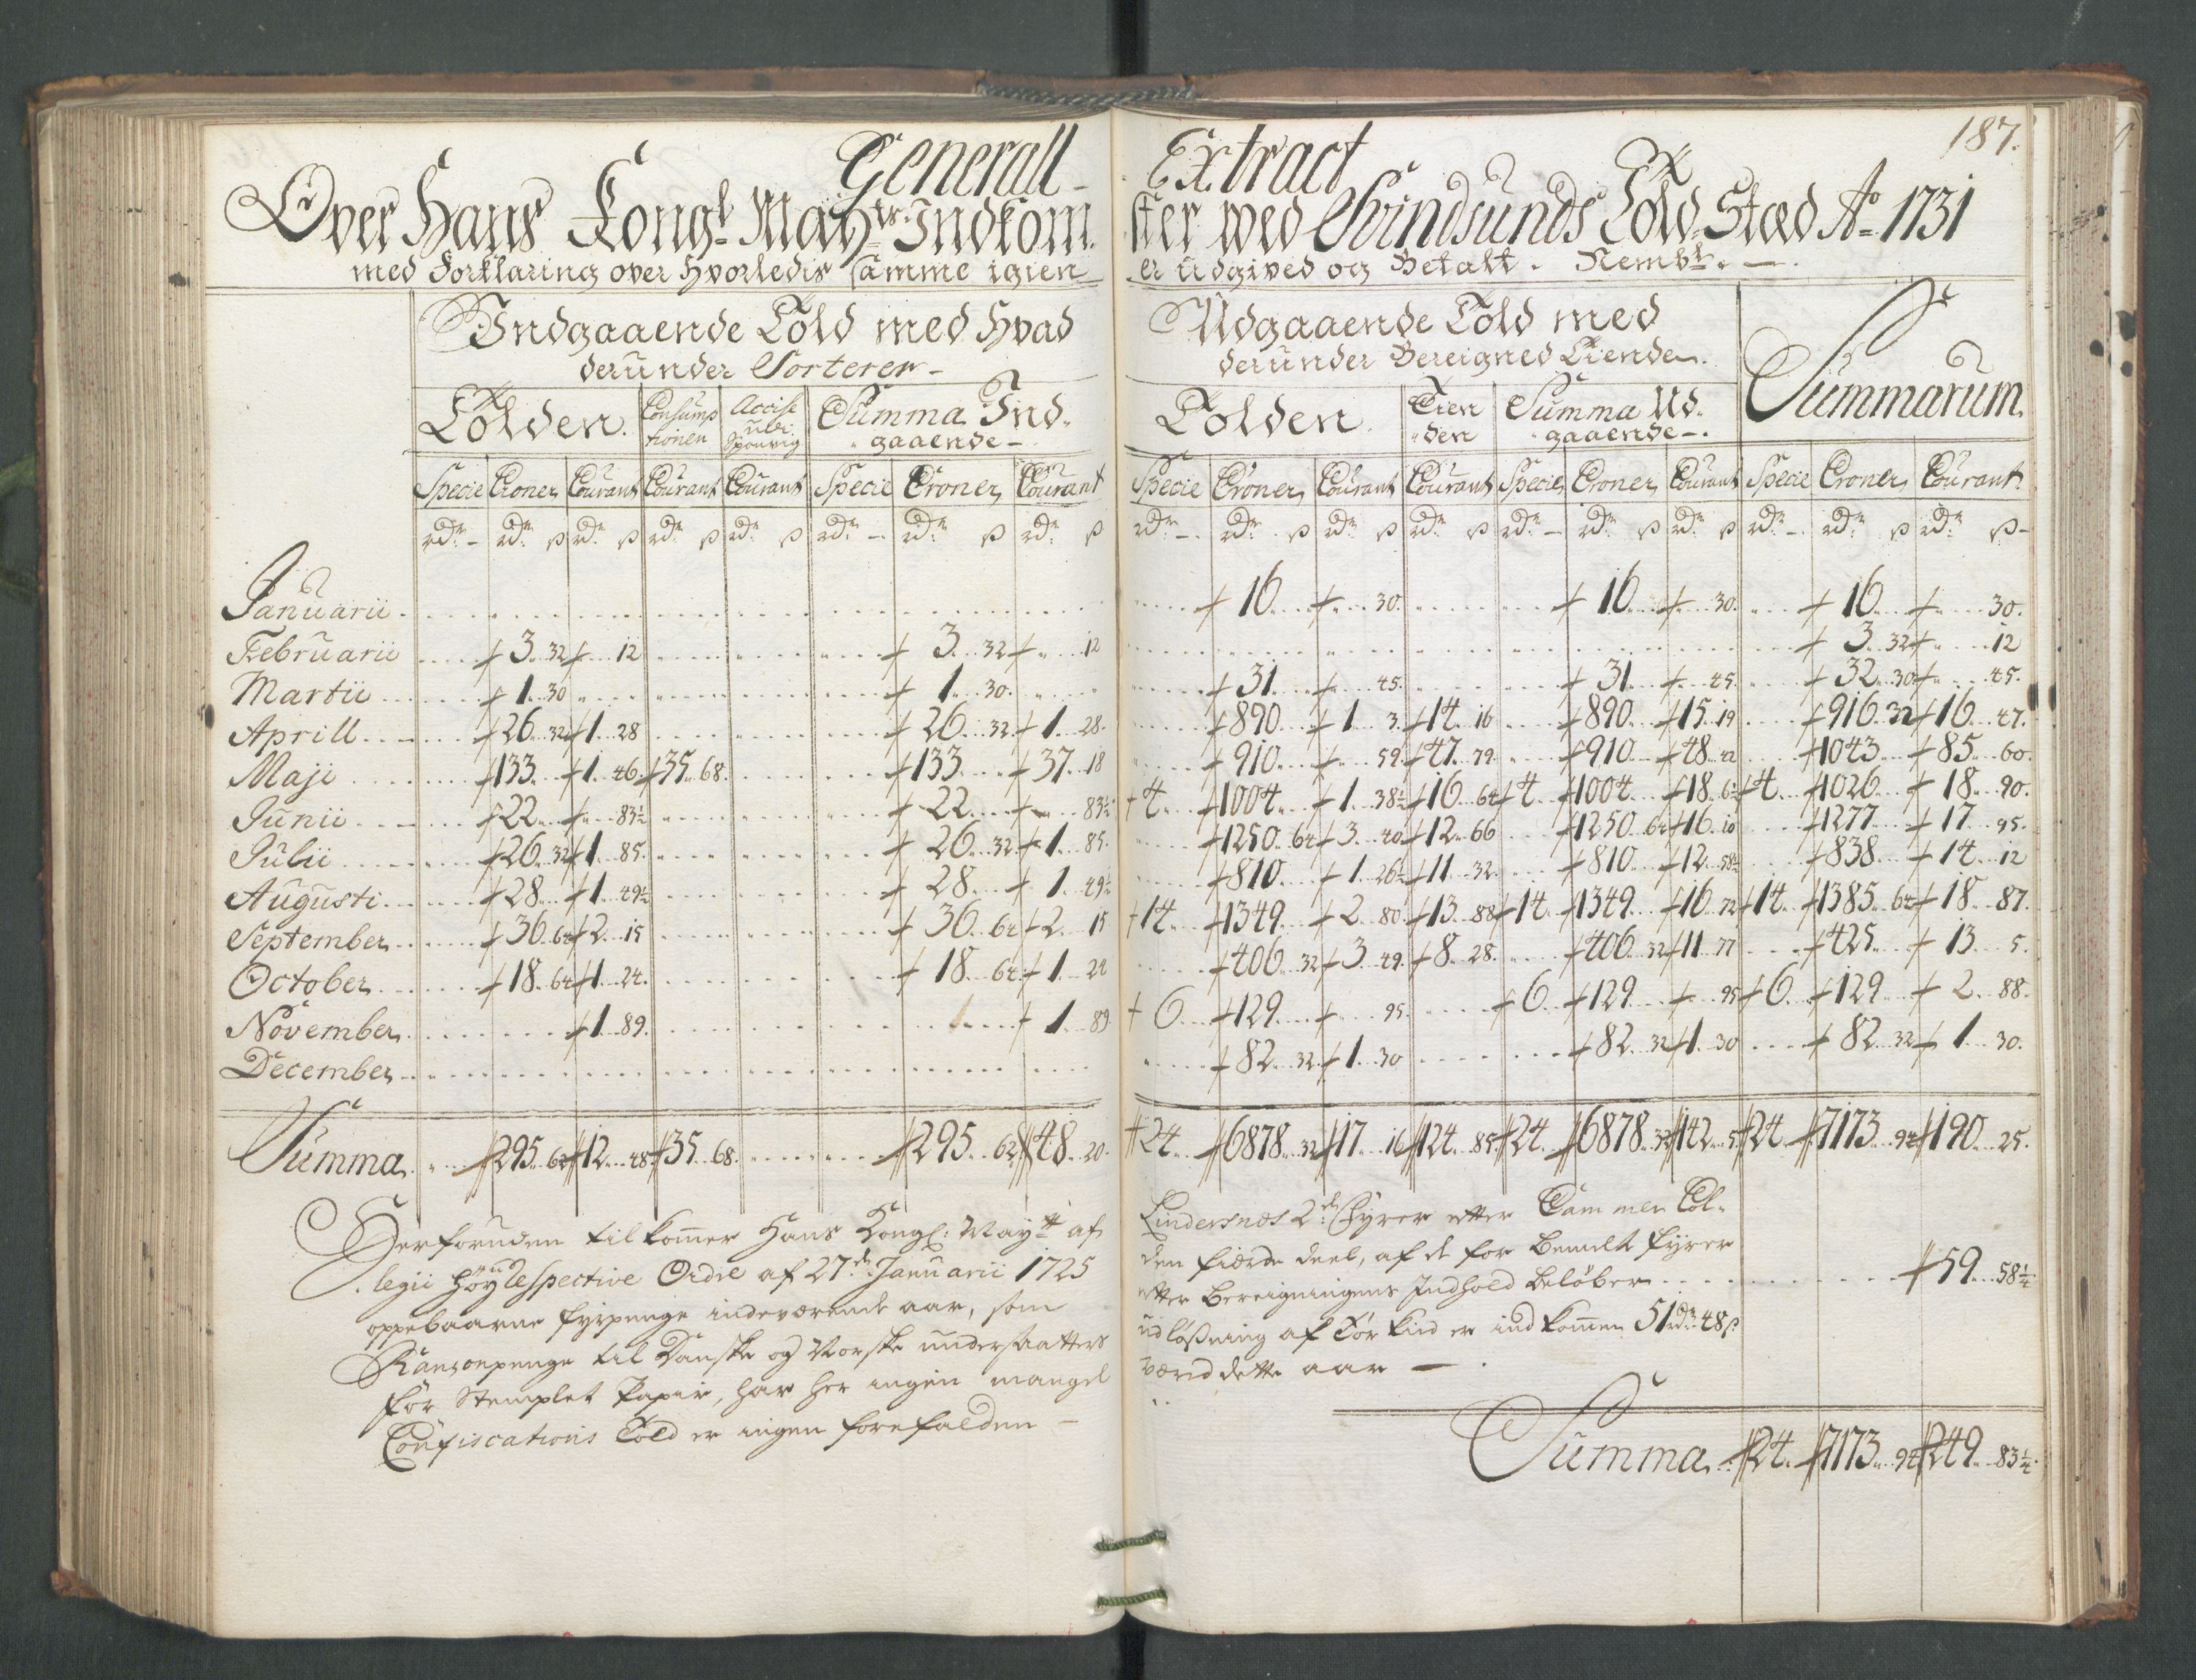 187.
Generall Extract
Over Hans Kongl. Mayts. Indkomster wed Svindsunds Told Stæd Ao. 1731
med Forklaring over Hvorledis samme igien er udgived og Betalt. Nembl.
Indgaaende Told med Hvad Udgaaende Told med
derunder Sorterer derunder Bereigned Tienden. Summarum.
Tolden. Consumptionen Accise Summa Indgaaende Tolden. Tienden Summa Udgaaende
Specie Croner Courant Courant Courant Specie Croner Courant Specie Croner Courant Courant Specie Croner Courant Specie Croner Courant
Rdr Rdr ß Rdr ß Rdr ß Rdr ß Rdr Rdr ß Rdr ß Rdr Rdr ß Rdr ß Rdr ß Rdr Rdr ß Rdr ß Rdr Rdr ß Rdr ß
Januarii 16 30 16 30 16 30
Februarii 3 32 12 3 32 12 3 32 12
Martii 1 30 1 30 31 45 31 45 32 30 45
Aprill 26 32 1 28 26 32 1 28 890 1 3 14 16 890 15 19 916 32 16 47
Maji 133 1 46 35 68 133 37 18 910 59 47 79 910 48 42 1043 85 60
Junii 22 83½ 22 83½ 4 1004 1 38½ 16 64 4 1004 18 6½ 4 1026 18 90
Julii 26 32 1 85 26 32 1 85 1250 64 3 40 12 66 1250 64 16 10 1277 17 95
Augusti 28 1 49½ 28 1 49½ 810 1 26½ 11 32 810 12 58½ 838 14 12
September 36 64 2 15 36 64 2 15 14 1349 2 80 13 88 14 1349 16 72 14 1385 64 18 87
October 18 64 1 24 18 64 1 24 406 32 3 49 8 28 406 32 11 77 425 13 5
November 1 89 1 89 6 129 95 6 129 95 6 129 2 88
December 82 32 1 30 82 32 1 30 82 32 1 30
Summa 295 62 12 48 35 68 295 62 48 20 24 6878 32 17 16 124 85 24 6878 32 142 5 24 7173 94 190 25
Herforuden tilkommer Hans Kongl: Mayts af Lindersnæs 2de Fyrer etter Cammer Col-
legii Høyrespective Ordre af 27de Januarii 1725 den fierde deel, af de for bemelte Fyrer
oppebaarne fyrpenge indeværende aar, som etter Bereigningens Indhold beløber 59 58¼
Ranzonpenge til Danske og Norske undersaatters udløsning af er indkommen 51 rdr 48 ß
for Stemplet Papir, har her ingen mangel værid dette aar
Confiscations Told er ingen forefalden
Summa 24 7173 94 249 83¼